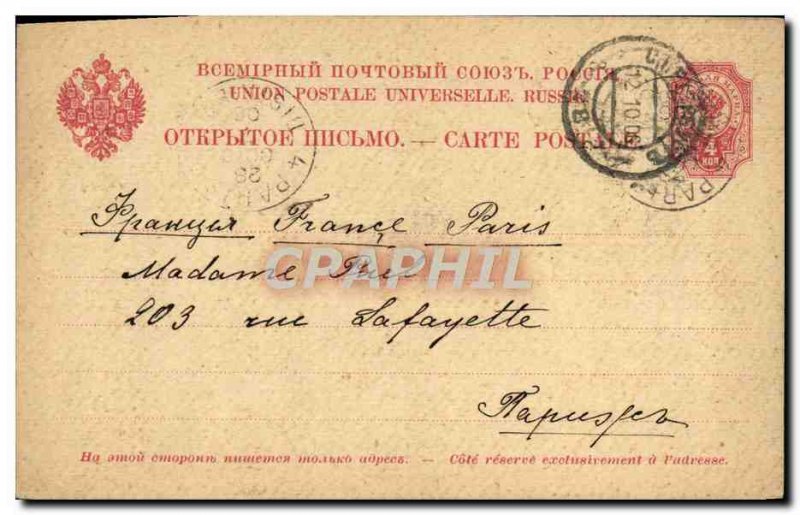 ВСЕМІРНЫЙ ПОЧТОВЫЙ СОЮЗЪ. РОССІЯ
UNION POSTALE UNIVERSELLE. RUSSIE
ОТКРЫТОЕ ПИСЬМО. — CARTE POSTALE
12.10.06
4 КОП.
Франция France Paris
Madame
203 rue Lafayette
Парижъ
На этой сторонѣ пишется только адресъ. — Côté réservé exclusivement à l'adresse.
CPAPHIL